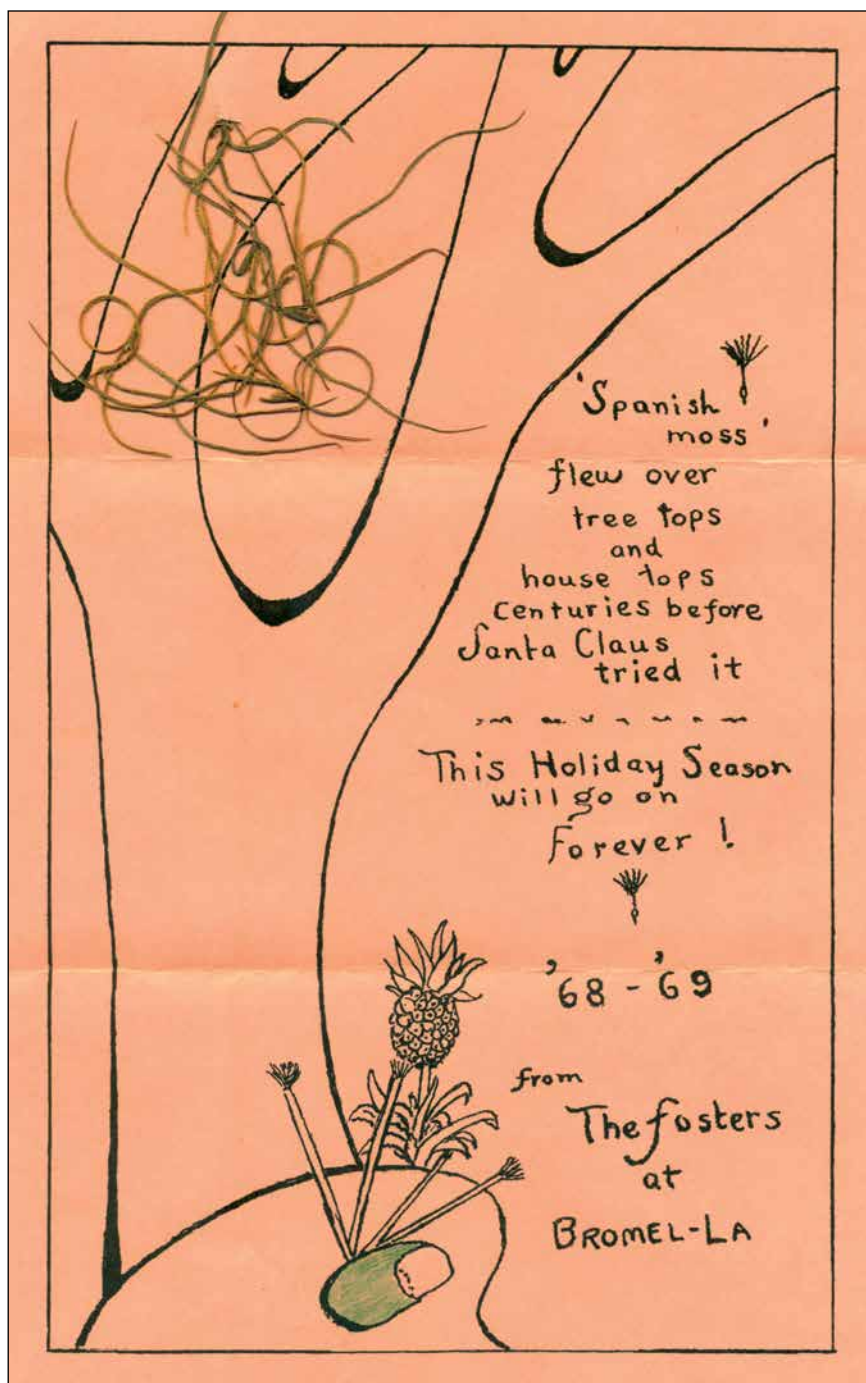 'Spanish
moss'
flew over
tree tops
and
house tops
centuries before
Santa Claus
tried it
This Holiday Season
will go on
Forever !
'68 - '69
from
The Fosters
at
BROMEL-LA